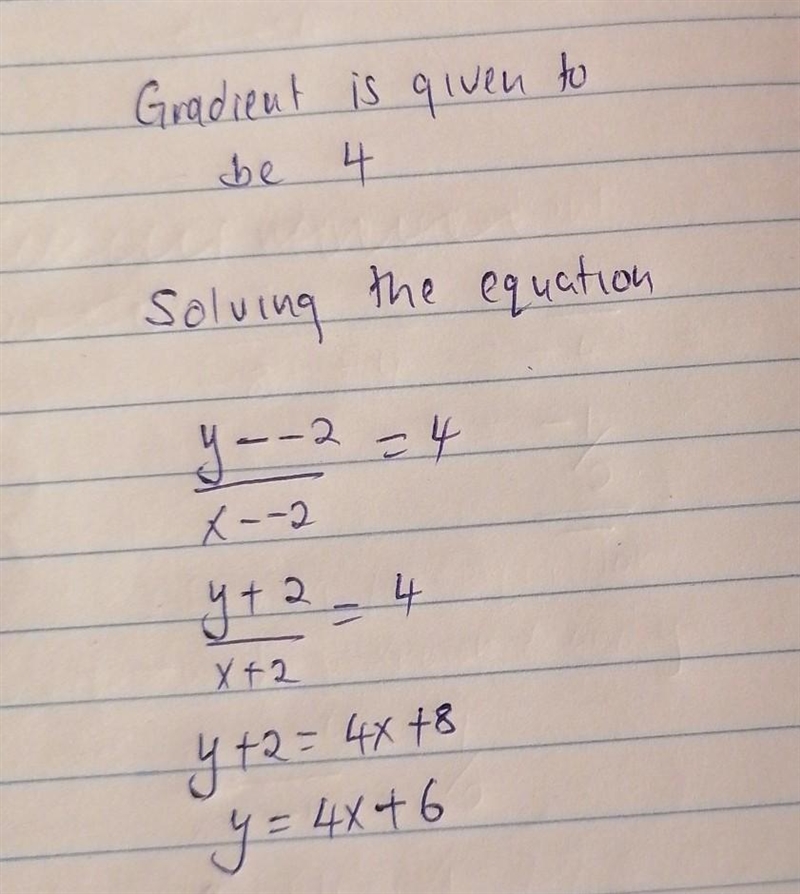 Gradient is given to
be 4
Solving the equation
y - -2 = 4
x - -2
y + 2 = 4
x + 2
y + 2 = 4x + 8
y = 4x + 6